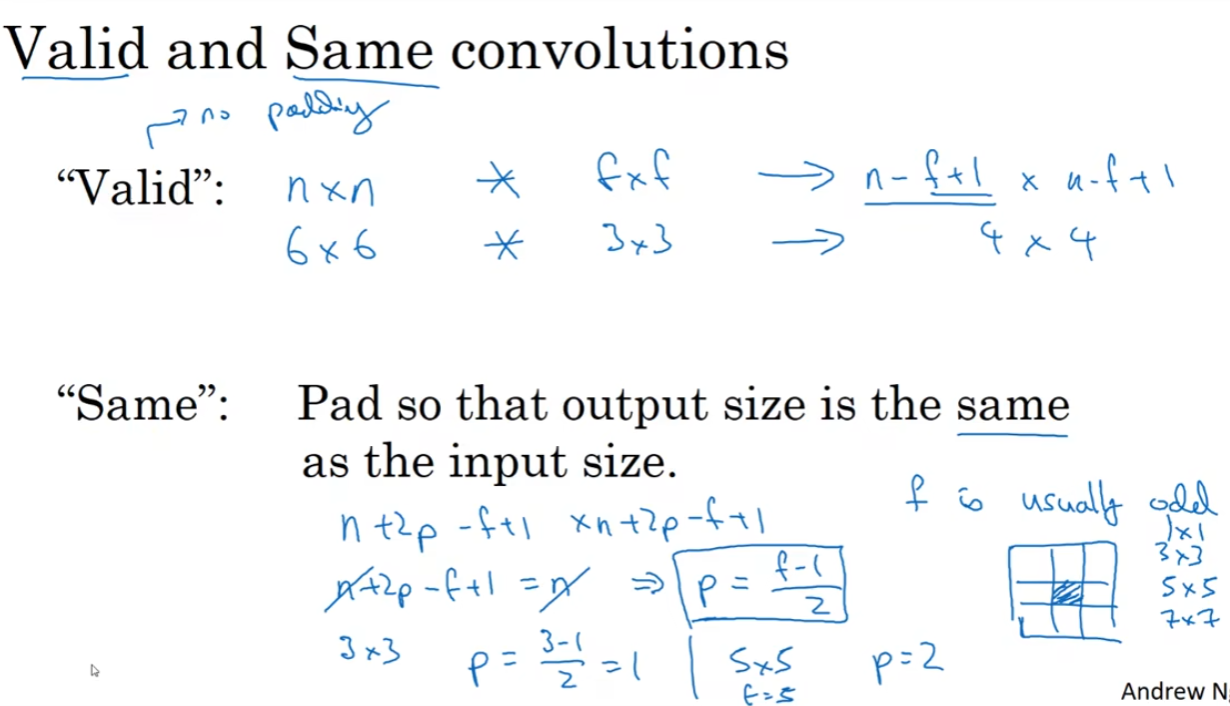 Valid and Same convolutions
→ no padding
“Valid”: n×n * f×f → n-f+1 × n-f+1
6×6 * 3×3 → 4 × 4
“Same”: Pad so that output size is the same
as the input size.
n+2p-f+1 ×n+2p-f+1
n+2p-f+1 = n ⇒ p = f-1/2
3×3 p = 3-1/2 = 1 | 5×5 p=2
f=5
f is usually odd
1×1
3×3
5×5
7×7
Andrew N